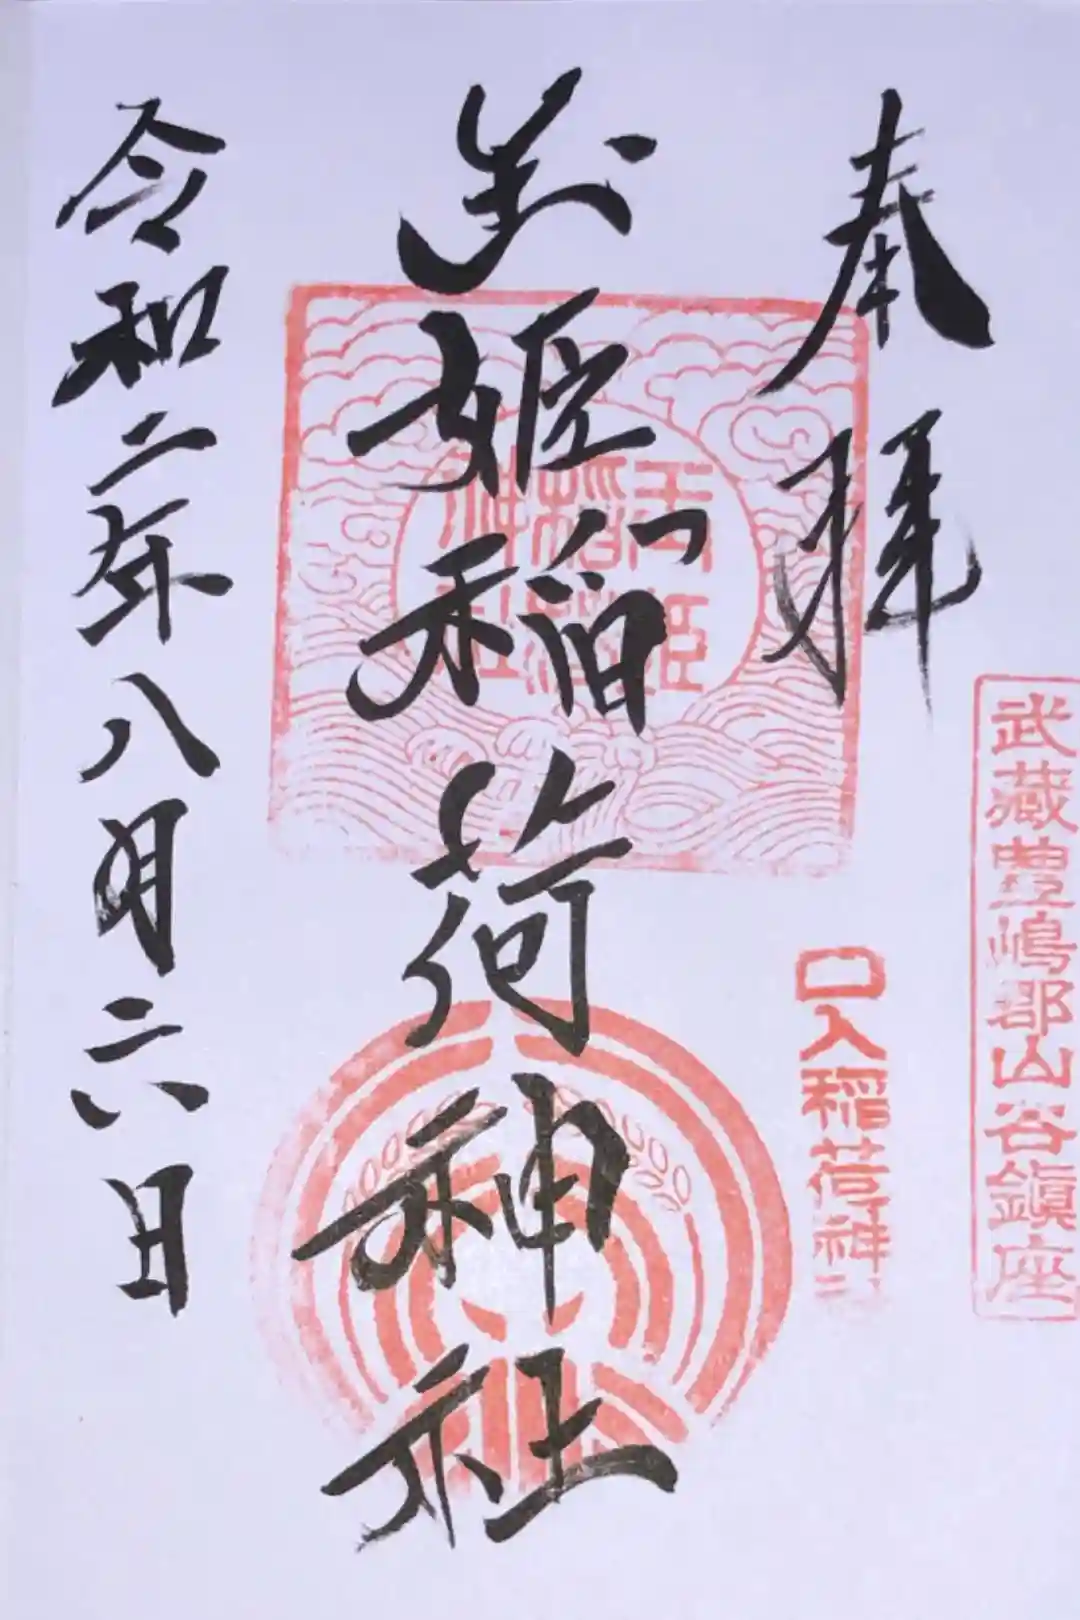 奉拝
武蔵豊嶋郡山谷鎮座
口入稲荷神社
玉姫稲荷神社
玉姫稲荷神社
令和二年八月二六日